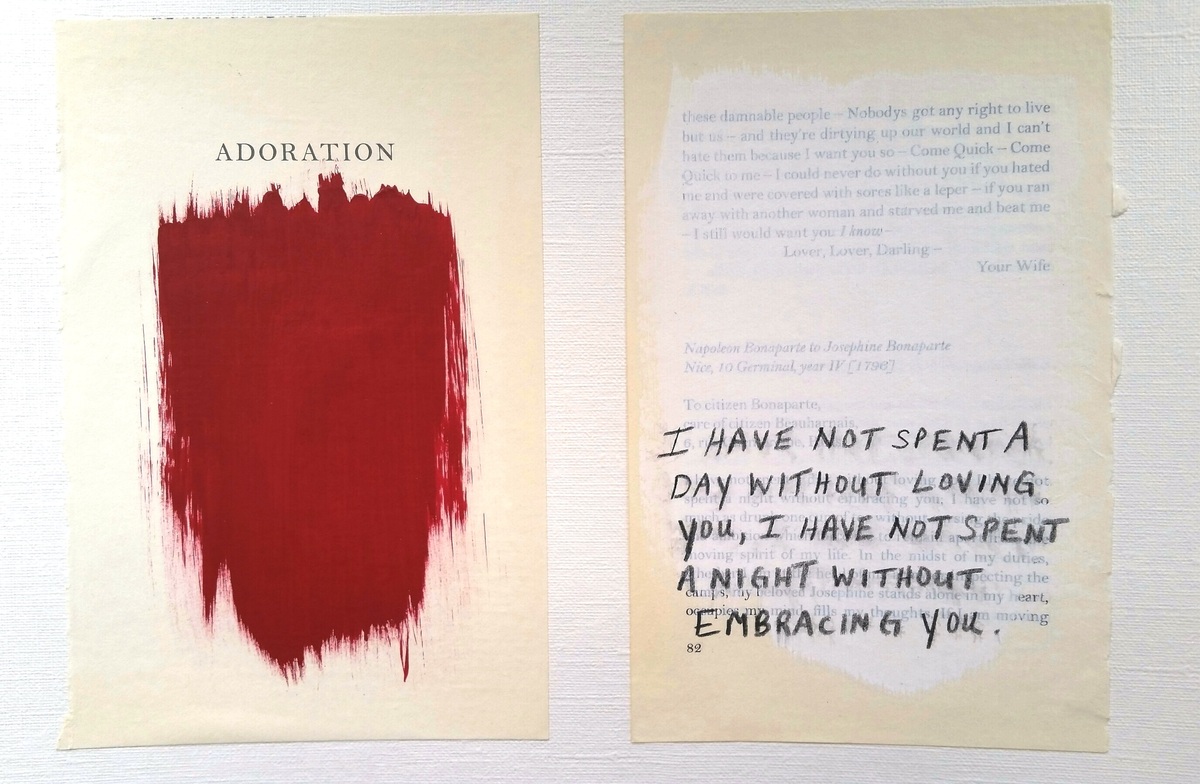 ADORATION
these damnable people – Nobodys got any right to live
but us – and they're dirtying up our world and I can't
hate them because I want you so – Come Quick – Come
Quick to me – I could never do without you if you hated
me and were covered with sores like a leper – if you ran
away with another woman and starved me and beat me
– I still would want you I know –
Lover, Lover, Darling –
Your Wife
Napoleon Bonaparte to Josephine Bonaparte
Nice, 10 Germinal, year IV [1796]
To citizen Bonaparte,
care of citizen Beauharnais,
6,
I HAVE NOT SPENT A
DAY WITHOUT LOVING
spent a night without embracing you, I have not so
YOU, I HAVE NOT SPENT
moving spirit of my life. In the midst of my duties,
A NIGHT WITHOUT
pecting the
camps, my beloved Josephine stands alone in my heart,
occupies my mind, fills my thoughts. moving
EMBRACING YOU.
82